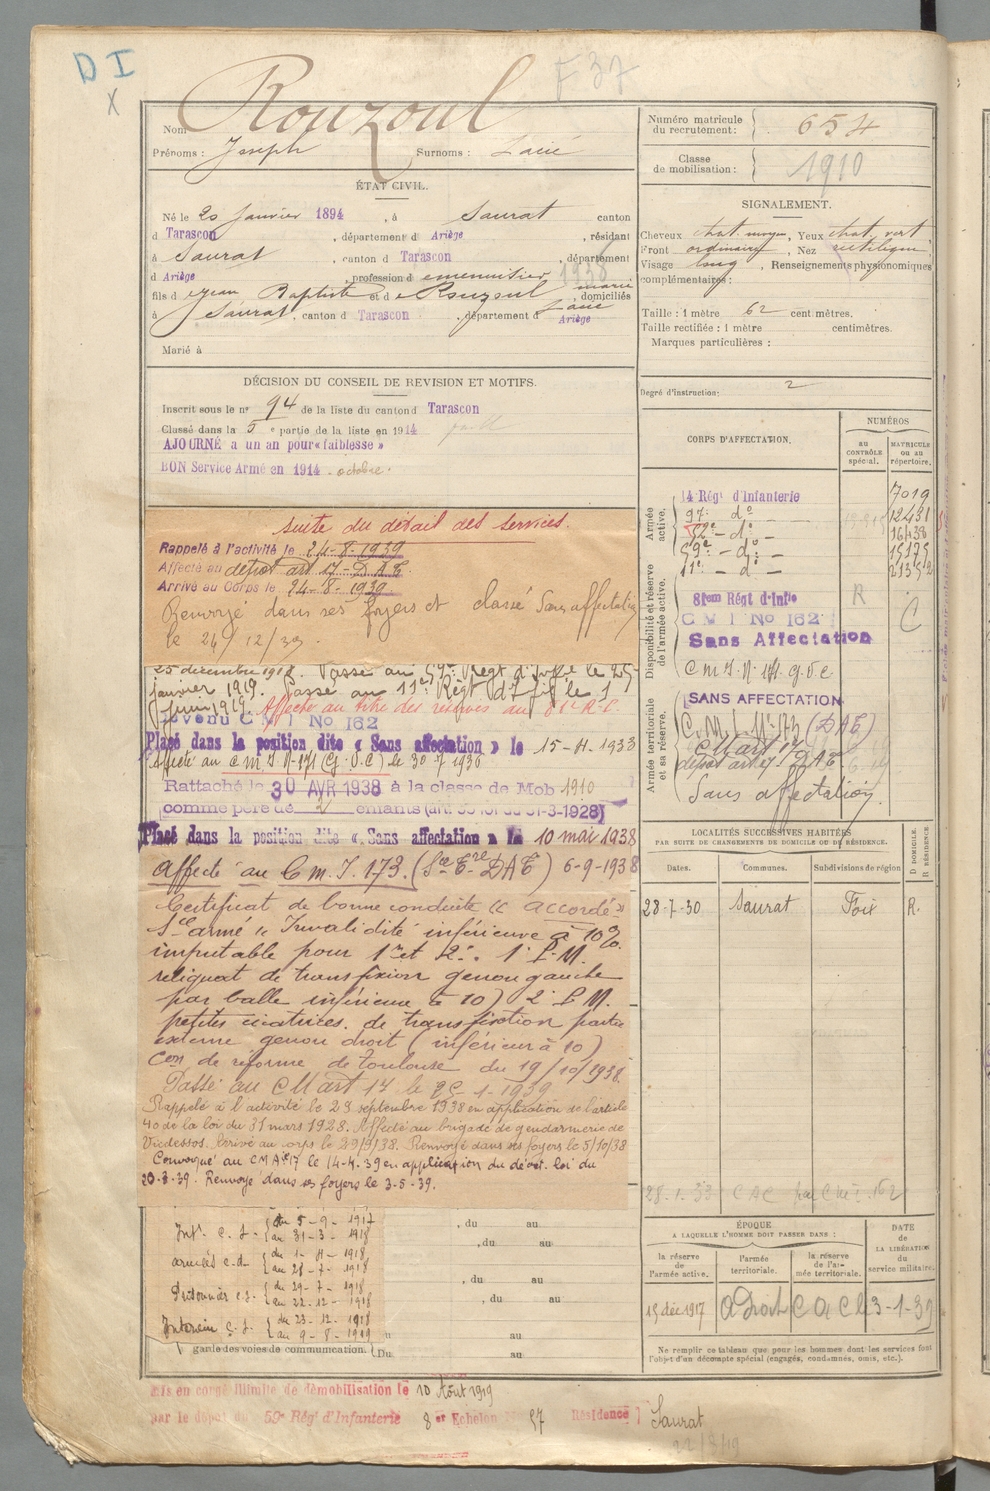 DI
X
F 37
Nom Rouzoul
Prénoms : Joseph Surnoms :
ÉTAT CIVIL.
Né le 20 Janvier 1894, à Saurat canton
d Tarascon, département d Ariège, résidant
à Saurat, canton d Tarascon, département
d Ariège, profession d menuisier 1938
fils d Jean Baptiste et de Rouzoul marie domiciliés
à Saurat, canton d Tarascon, département d Ariège
Marié à
DÉCISION DU CONSEIL DE REVISION ET MOTIFS.
Inscrit sous le n° 94 de la liste du canton d Tarascon
Classé dans la 5 e partie de la liste en 1914
AJOURNÉ a un an pour « faiblesse »
BON Service Armé en 1914 - octobre.
suite du détail des services.
Rappelé à l'activité le 24-8-1939
Affecté au dépôt art 17 - D A T.
Arrivé au Corps le 24-8-1939
Renvoyé dans ses foyers et classé Sans affectation
le 24/12/39.
25 décembre 1918. Passé au 59e Régt d'Inf le 25
janvier 1919. Passé au 11e Régt d'Inf le 1
Juin 1919. Affecté au titre des réserves au 81e R.I.
devenu C M I No 162
Placé dans la position dite « Sans affectation » le 15-11-1933
Affecté au C M I N° 171 (G.V.C) le 30-7-1936
Rattaché le 30 AVR 1938 à la classe de Mob 1910
comme père de 2 enfants (art. 58 loi du 31-3-1928)
Placé dans la position dite « Sans affectation » le 10 mai 1938
Affecté au C.M.I. 173. (Sce Ere DAT) 6-9-1938
Certificat de bonne conduite « accordé »
Sce armé « Invalidité inférieure à 10%
imputable pour 1° et 2°. 1° P.M.
reliquat de transfixion genou gauche
par balle inférieure à 10) 2° P.M.
petites cicatrices de transfixion partie
externe genou droit (inférieur à 10)
Con de réforme de Toulouse du 19/10/1938.
Passé au CM art 17 le 25-1-1939
Rappelé à l'activité le 29 septembre 1938 en application de l'article
40 de la loi du 31 mars 1928. Affecté au brigade de gendarmerie de
Vicdessos. Arrivé au corps le 29/9/38. Renvoyé dans ses foyers le 5/10/38
Convoqué au CMA 17 le 14-4-39 en application du décret loi du
20-3-39. Renvoyé dans ses foyers le 3-5-39.
Intr. C. S. { du 5 - 9 - 1917
au 31 - 3 - 1918
armées c.d. { du 1 - 4 - 1918
au 28 - 7 - 1918
Prisonnier c.d. { du 29 - 7 - 1918
au 22 - 12 - 1918
Intérieur C. S. { du 23 - 12 - 1918
au 9 - 8 - 1919
, du au
,du au
, du au
, du au
au
garde des voies de communication. (Du au
Mis en congé illimité de démobilisation le 10 Août 1919
par le dépôt du 59e Rég' d'Infanterie 8 er Echelon N° 57 Résidence Saurat
22/8/19
Numéro matricule du recrutement : 654
Classe de mobilisation : 1910
SIGNALEMENT.
Cheveux chat. moyen, Yeux chat. vert
Front ordinaire, Nez rectiligne
Visage long, Renseignements physionomiques
complémentaires :
Taille : 1 mètre 62 centimètres.
Taille rectifiée : 1 mètre centimètres.
Marques particulières :
Degré d'instruction: 2
CORPS D'AFFECTATION.
NUMÉROS
AU CONTRÔLE spécial.
MATRICULE OU AU répertoire.
Armée active.
14 Régt d'Infanterie 7019
97e - do - 12431
52e - do - 16438
59e - do - 15175
11e - do -
Disponibilité et réserve de l'armée active.
81em Régt d'Infie R
C M I No 162 C
Sans Affectation
C M I N° 171 G.V.C
Armée territoriale et sa réserve.
SANS AFFECTATION
C.M.I. N° 173 (DAT)
C M art 17
dépôt art 17 DAT
Sans affectation.
LOCALITÉS SUCCESSIVES HABITÉES
PAR SUITE DE CHANGEMENTS DE DOMICILE OU DE RÉSIDENCE.
Dates. Communes. Subdivisions de région D DOMICILE. R RÉSIDENCE
28-7-30 Saurat Foix R.
28.1.33 CAC par C M I. 162
ÉPOQUE
A LAQUELLE L'HOMME DOIT PASSER DANS :
la réserve de l'armée active. l'armée territoriale. la réserve de l'armée territoriale.
DATE de LA LIBÉRATION du service militaire.
15 déc 1917
Ne remplir ce tableau que pour les hommes dont les services font
l'objet d'un décompte spécial (engagés, condamnés, omis, etc.).